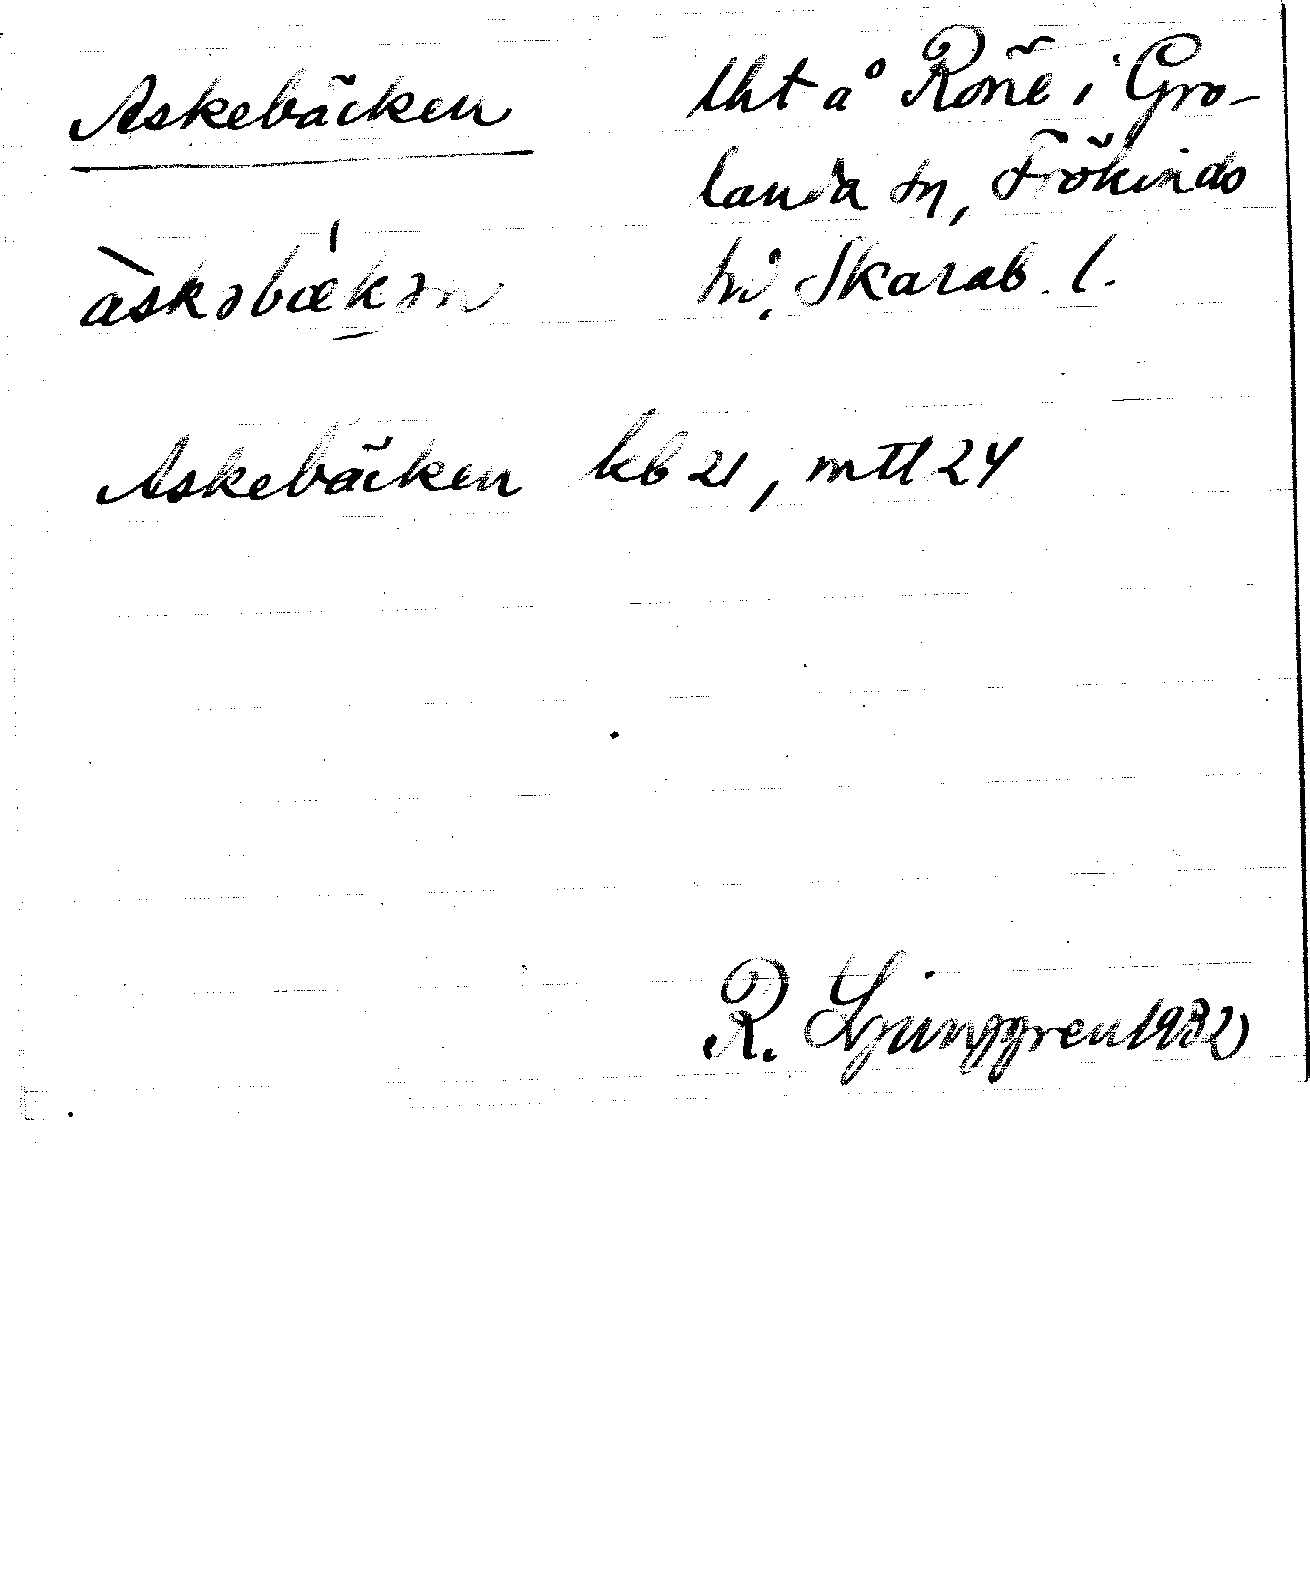 Askebäcken
lht å Röne i Gro-
landa sn, Frökinds
hd, Skarab. l.
àskəbækən
Askebäcken kb 21, mtl 24
R. Ljunggren 1932